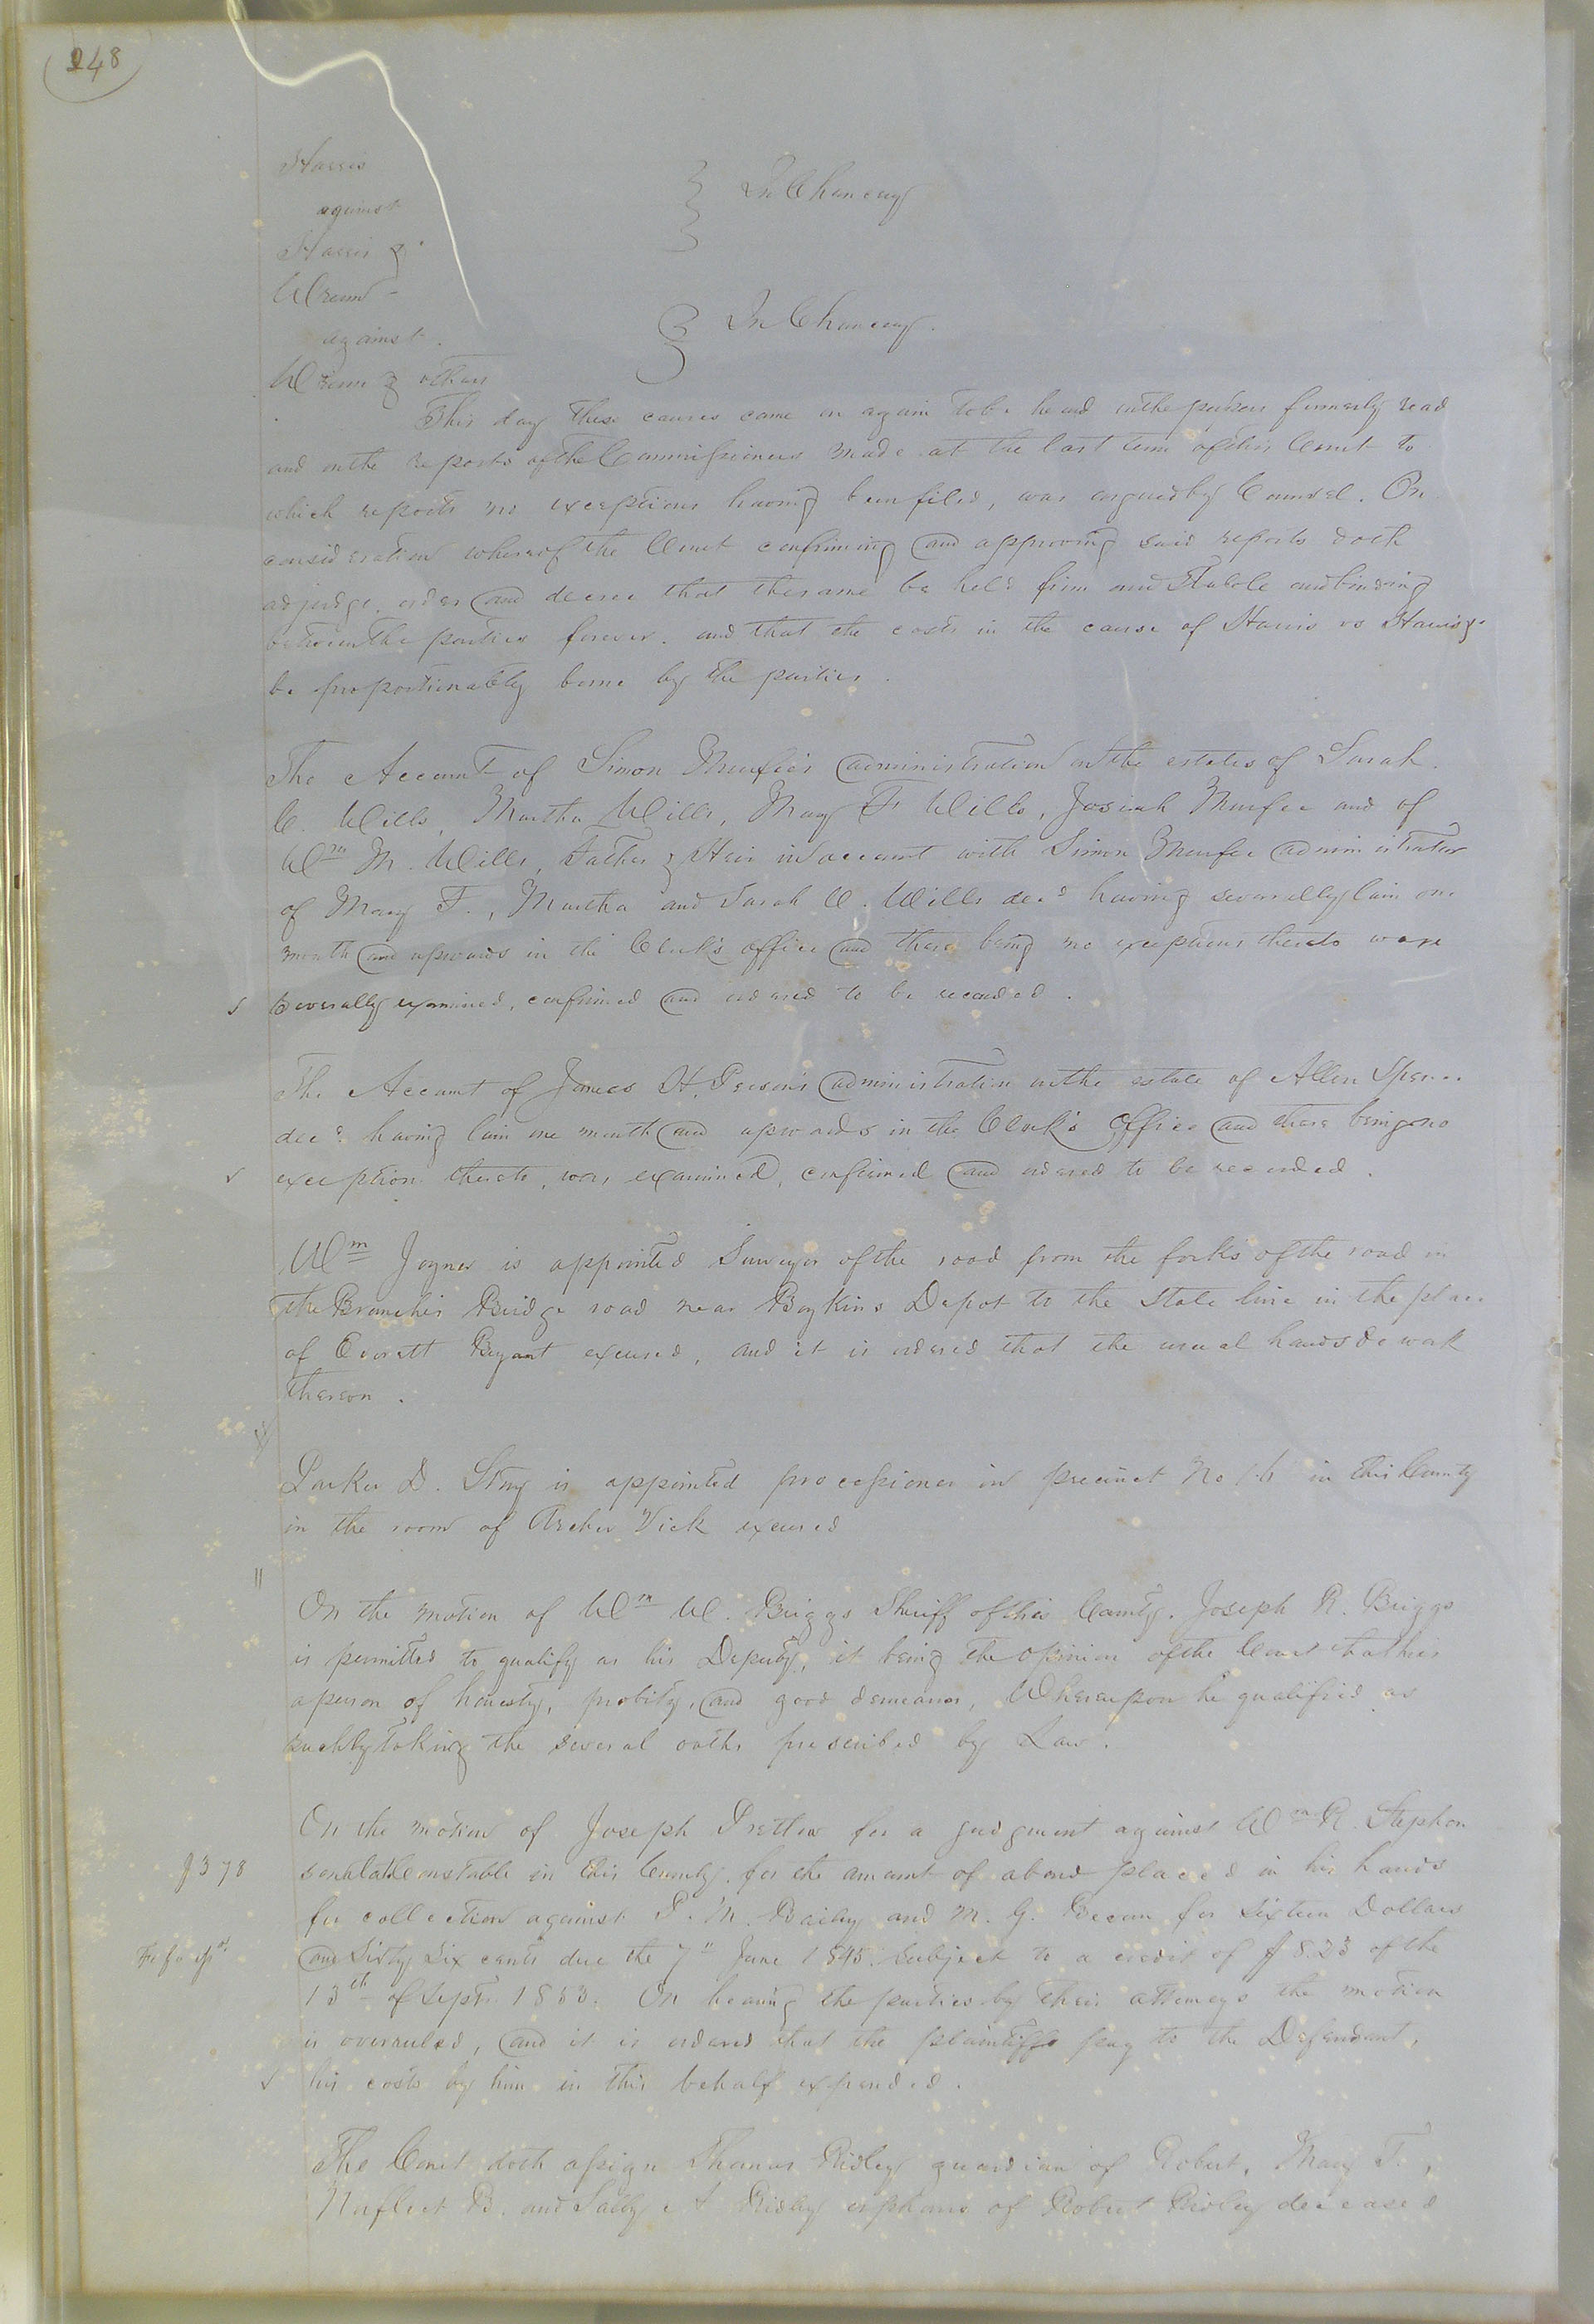 248
Harris
against
Harris &c
In Chancery
Wrenn
against
Wrenn & others
In Chancery.
This day these causes came on again to be heard on the papers formerly read
and on the reports of the Commissioners made at the last term of this Court to
which reports no exceptions having been filed, was argued by Counsel. On
consideration whereof the Court confirming and approving said reports doth
adjudge, order and decree that the same be held firm and Stable and binding
between the parties forever. and that the costs in the cause of Harris vs Harris &c
be proportionably borne by the parties.
The Account of Simon Murfee's administration on the estates of Sarah
C. Wills, Martha Wills, Mary F. Wills, Josiah Murfee and of
Wm M. Wills, Father & Heir in account with Simon Murfee administrator
of Mary F., Martha and Sarah C. Wills decd having severally lain one
month and upwards in the Clerk's office and there being no exceptions thereto were
severally examined, confirmed and ordered to be recorded.
The Account of James H. Preson's administration on the estate of Allen Spence
decd having lain one month and upwards in the Clerk's Office and there being no
exception thereto, was examined, confirmed and ordered to be recorded.
Wm Joyner is appointed Surveyor of the road from the forks of the road in
the Branches Bridge road near Boykins Depot to the State line in the place
of Everett Bryant excused, and it is ordered that the usual hands do work
thereon.
Parker D. Story is appointed processioner in precinct No 16 in this County
in the room of Archer Vick excused
On the motion of Wm W. Briggs Sheriff of this County. Joseph R. Briggs
is permitted to qualify as his Deputy, it being the opinion of the Court that he is
a person of honesty, probity, and good demeanor, Whereupon he qualified as
such by taking the several oaths prescribed by Law.
On the motion of Joseph Pretlow for a judgment against Wm R. Stephen
son late Constable in this County. for the amount of a bond placed in his hands
for collection against P. M. Bailey and M. G. for Sixteen Dollars
and Sixty Six cents due the 7" June 1845. Subject to a credit of $8.23 of the
13th of Sept. 1853. On hearing the parties by their attorneys the motion
is overruled, and it is ordered that the plaintiff pay to the Defendant,
his costs by him in this behalf expended.
The Court doth assign Thomas Ridley guardian of Robert, Mary T.,
Norfleet B. and Sally A Ridley orphans of Robert Ridley deceased